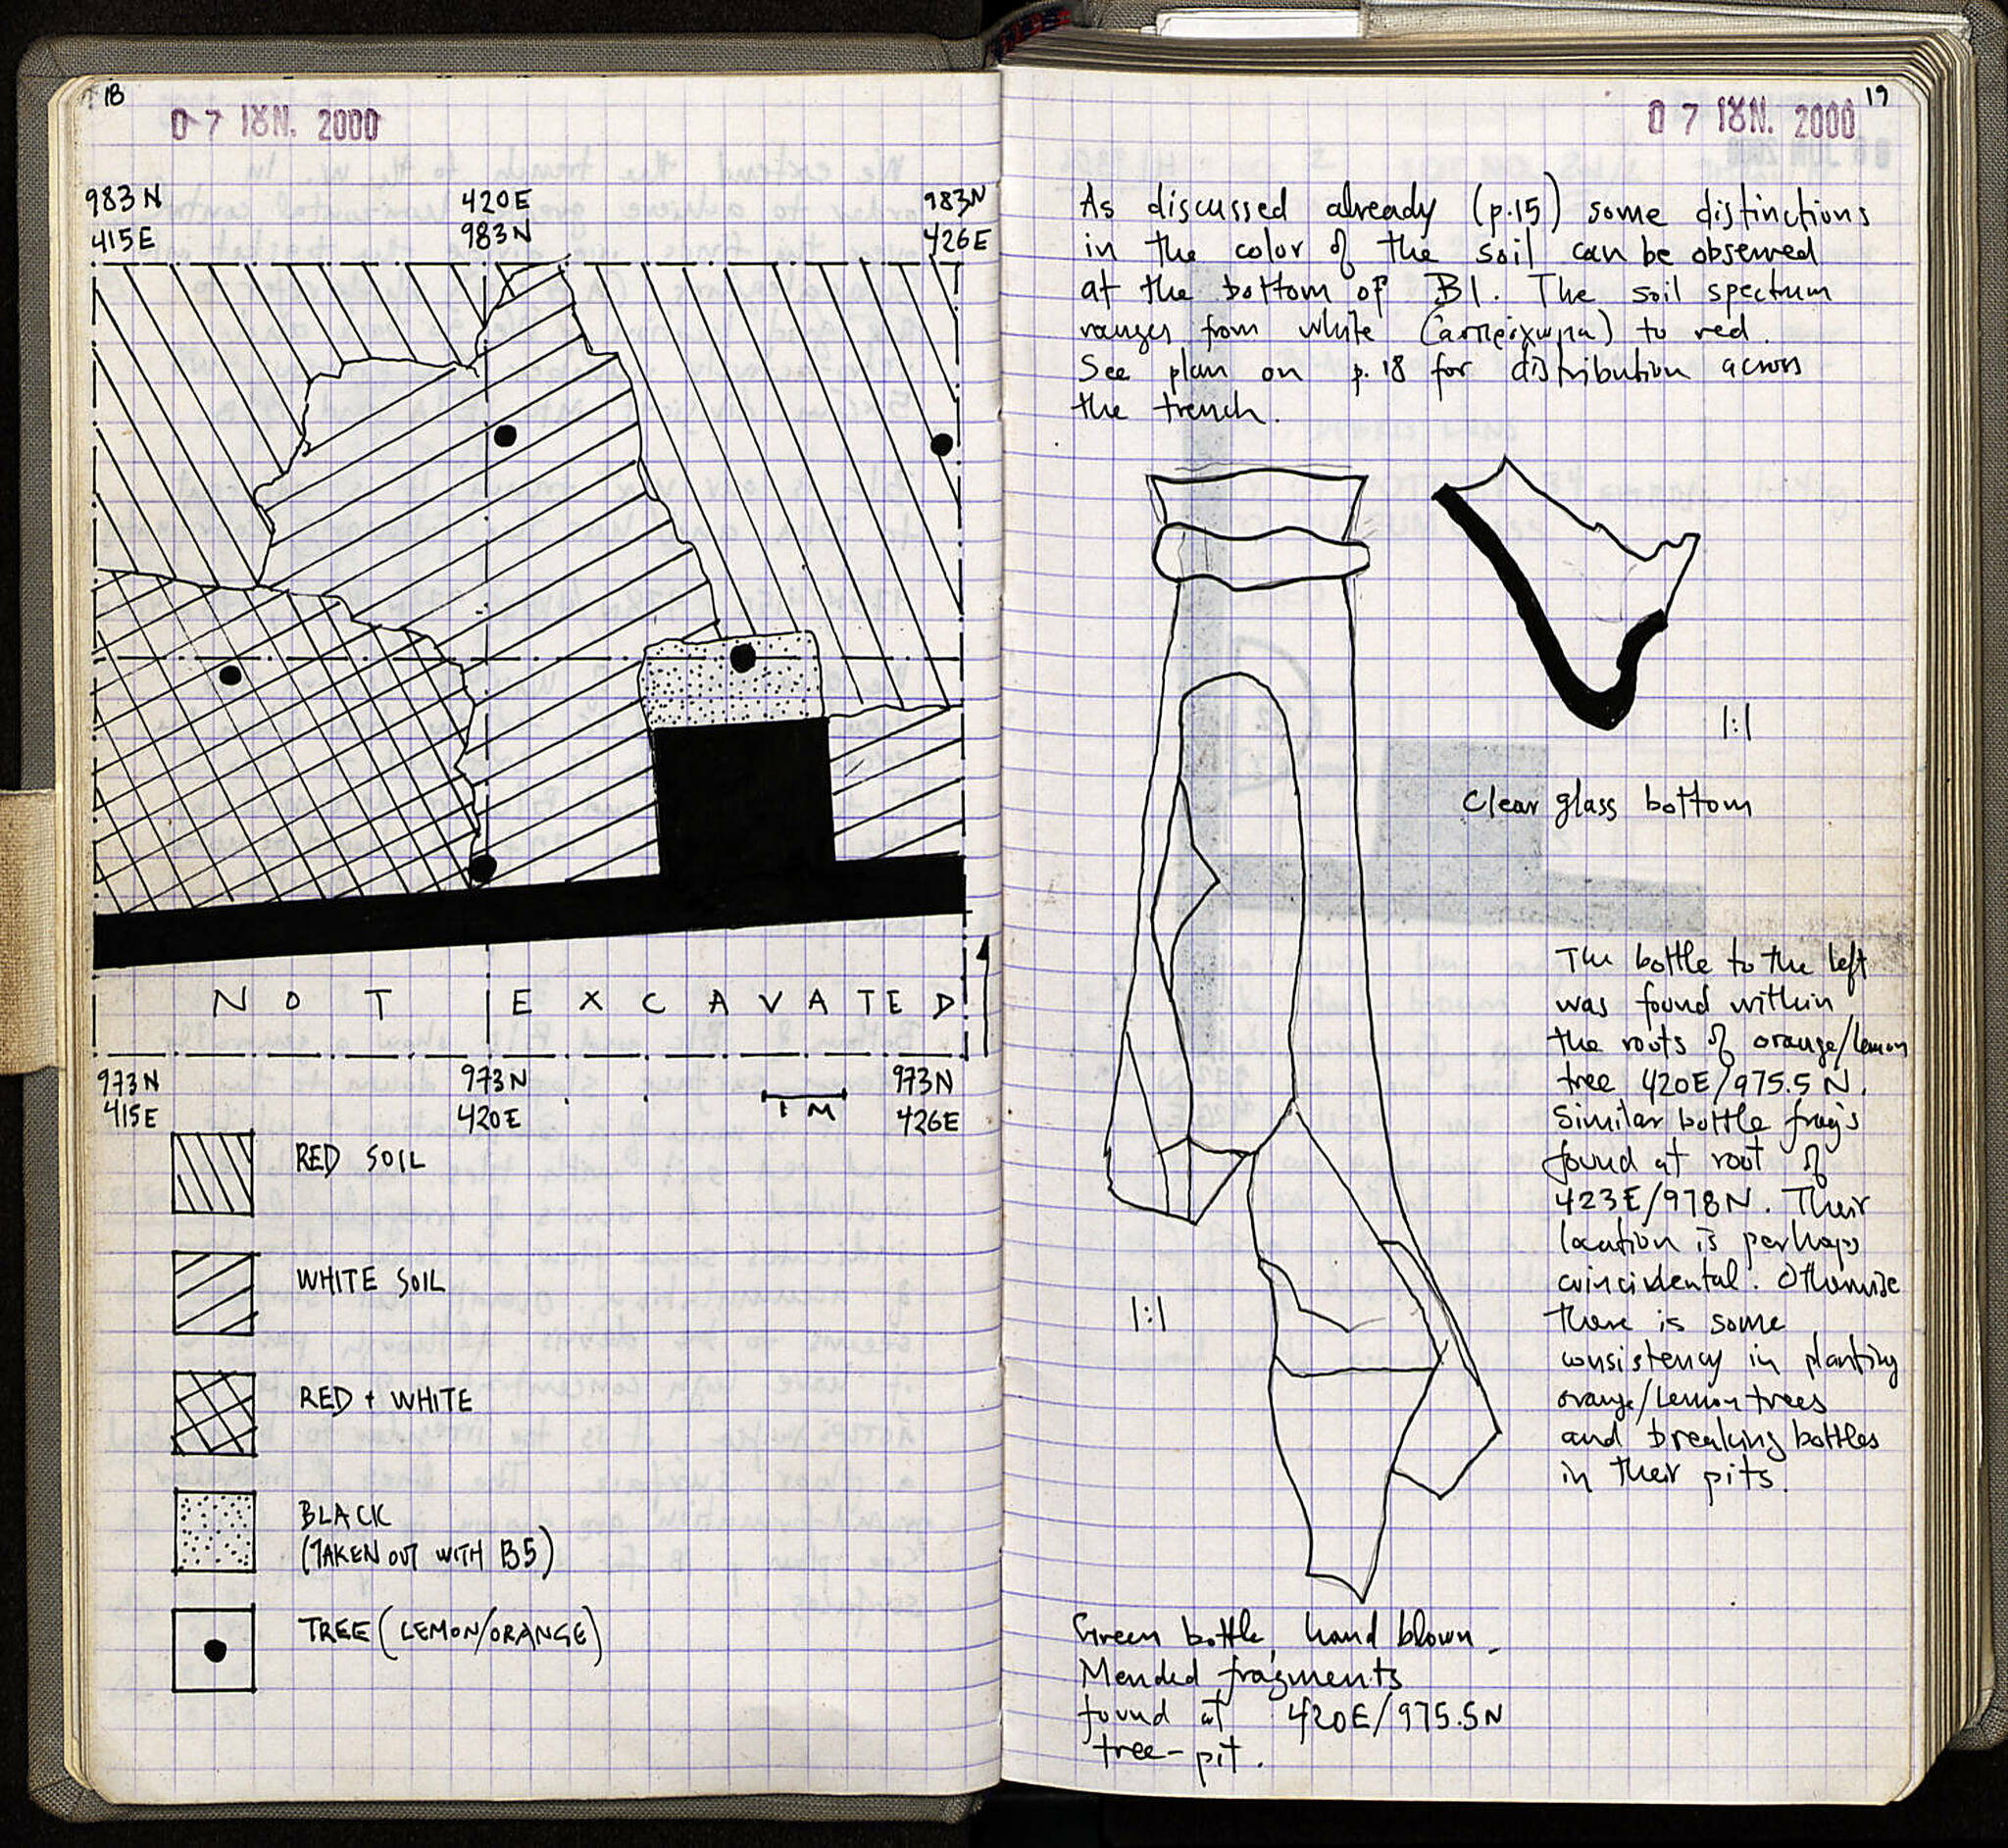 18
07 ΙȣΝ. 2000
983N
415E
420E
983N
983N
426E
NOT EXCAVATED
973N
415E
973N
420E
1 M
973N
426E
RED SOIL
WHITE SOIL
RED + WHITE
BLACK
(TAKEN OUT WITH B5)
TREE (LEMON/ORANGE)
19
07 ΙȣΝ. 2000
As discussed already (p.15) some distinctions
in the color of the soil can be observed
at the bottom of B1. The soil spectrum
ranges from white (ασπρόχωμα) to red.
See plan on p. 18 for distribution across
the trench.
1:1
Clear glass bottom
The bottle to the left
was found within
the roots of orange/lemon
tree 420E/975.5N.
Similar bottle frags
found at root of
423E/978N. Their
location is perhaps
coincidental. Otherwise
there is some
consistency in planting
orange/lemon trees
and breaking bottles
in their pits.
1:1
Green bottle, hand blown.
Mended fragments
found at 420E/975.5N
tree-pit.